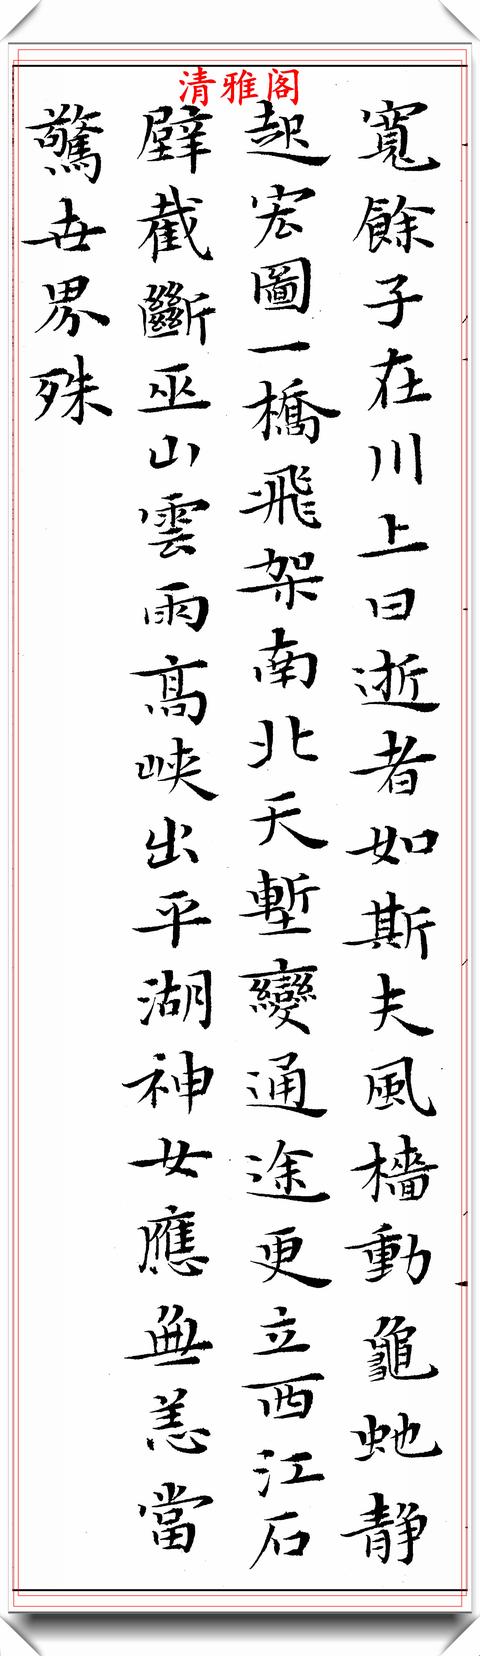 清雅阁
寬餘子在川上曰逝者如斯夫風檣動龜虵静
起宏圖一橋飛架南北天塹變通途更立西江石
壁截斷巫山雲雨高峽出平湖神女應無恙當
驚世界殊